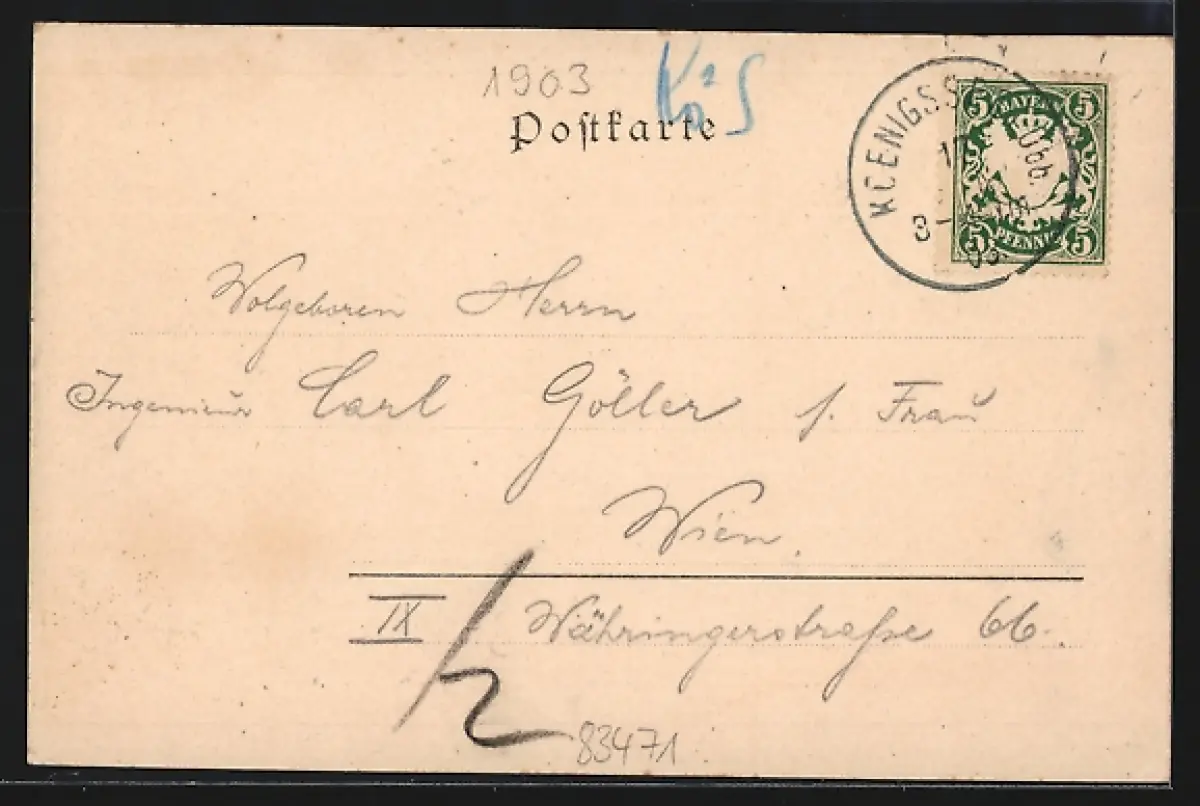 1903
Kö S
Postkarte
KOENIGSSEE Obb.
5 BAYERN 5
5 PFENNIG 5
Wolgeboren Herrn
Ingenieur Carl Göller s. Frau
Wien.
IX Währingerstraße 66.
2
83471